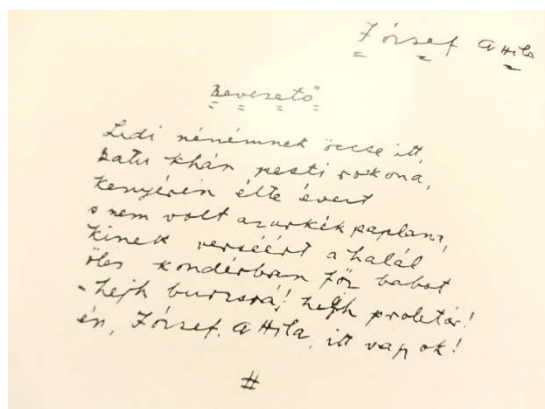 József Attila
Bevezető
Lidi nénémnek öccse itt,
Batu khán pesti rokona,
kenyéren élte éveit
s nem volt azúrkék paplana,
kinek verséért a halál
öles kondérban főz babot
- hejh burzsoá! hejh proletár!
én, József Attila, itt vagyok!
#